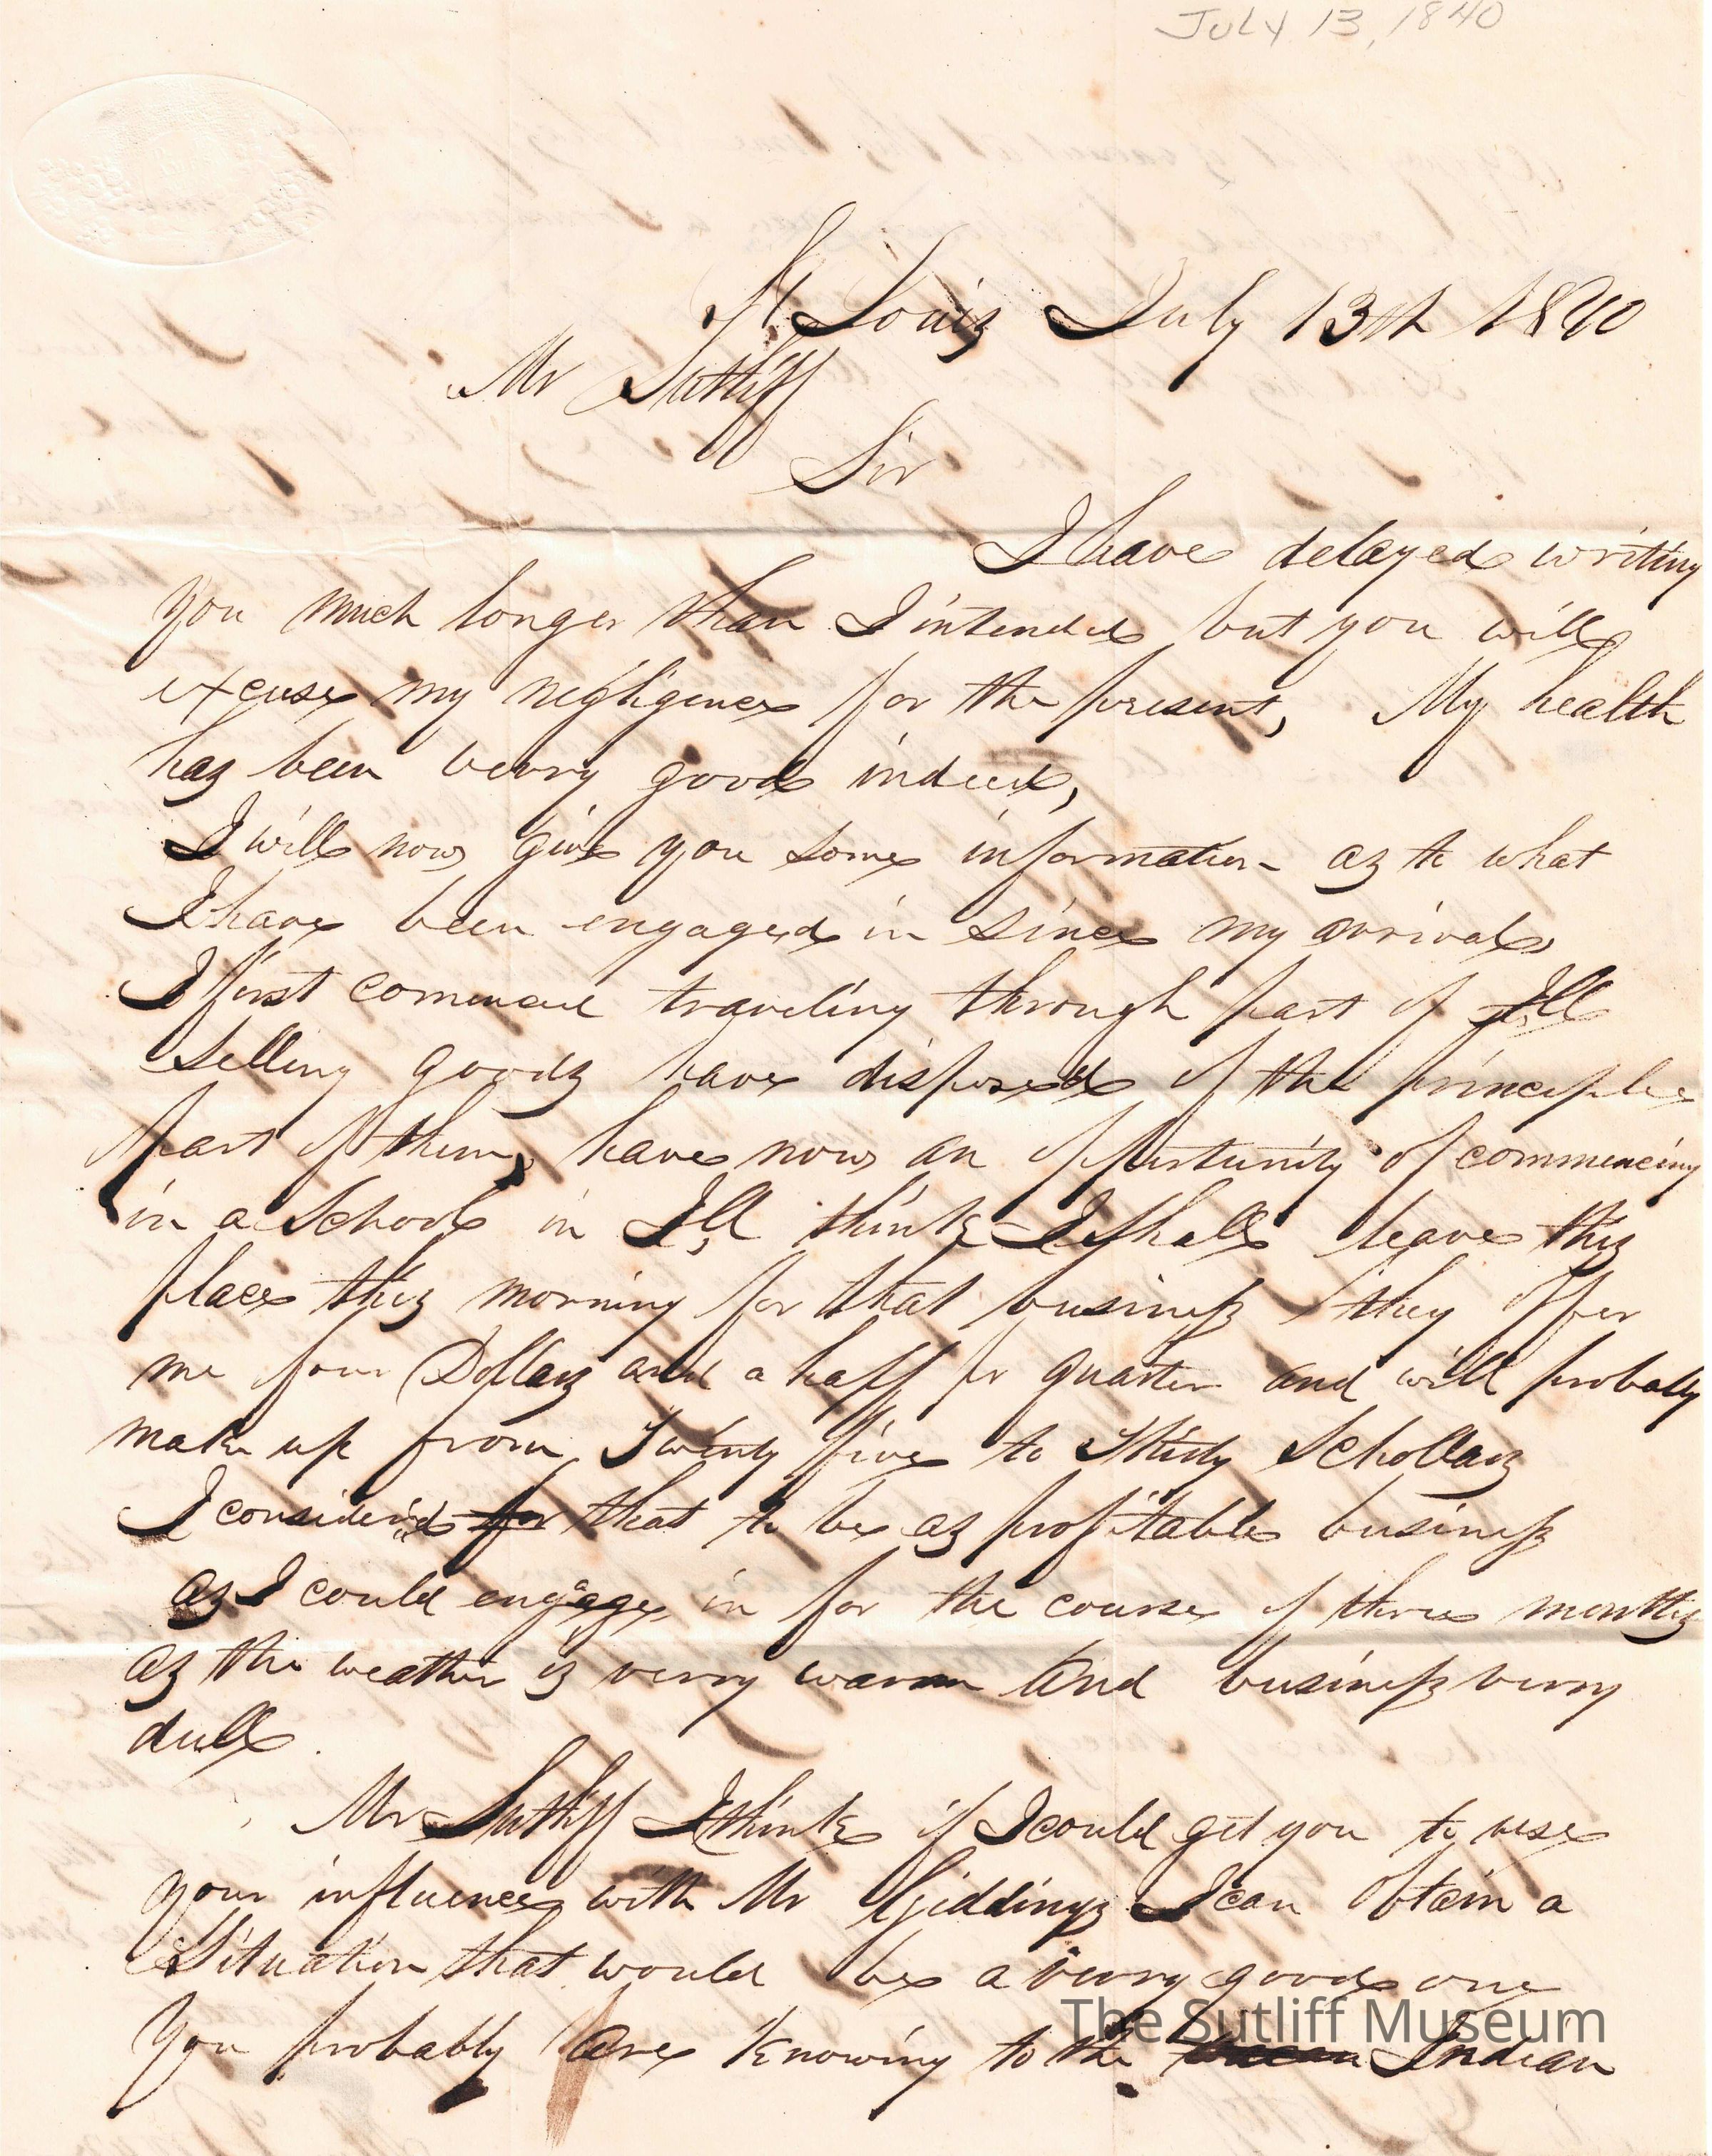 JULY 13, 1840
St Louis July 13th 1840
Mr Sutliff
Sir
I have delayed writing
you much longer than I intended but you will
excuse my negligence for the present, My health
has been verry good indeed,
I will now give you some information as to what
I have been engaged in since my arrival,
I first commence traveling through part of Ill
selling goods have disposed of the principle
part of them, have now an opportunity of commencing
in a School in Ill think I shall leave this
place this morning for that business they offer
me four Dollars and a half pr quarter and will probally
make up from Twenty five to Thirty Schollars
I considered for that to be as profitable business
as I could engage in for the course of three months
as the weather is verry warm and business verry
dull.
Mr Sutliff I think if I could get you to use
your influence with Mr Giddings I can obtain a
Situation that would be a verry good one
You probably are knowing to the Indian
The Sutliff Museum